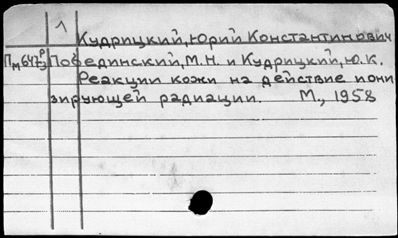 1
Кудрицкий, Юрий Константинович
Побединский, М.Н. и Кудрицкий, Ю.К.
Реакции кожи на действие иони
зирующей радиации. М., 1958